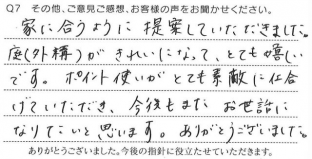 Q7 その他、ご意見ご感想、お客様の声をお聞かせください。
家に合うように提案していただきました。
庭(外構)がきれいになって、とても嬉しい
です。ポイント使いがとても素敵に仕上
げていただき、今後もまたお世話に
なりたいと思います。ありがとうございました。
ありがとうございました。今後の指針に役立たせていただきます。